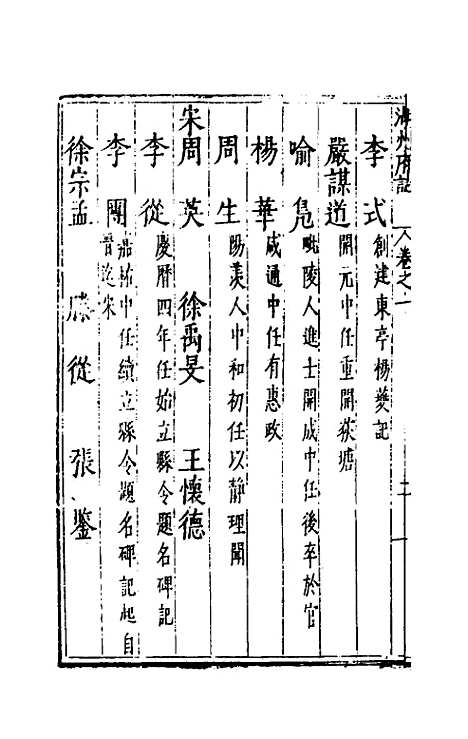 湖州府誌 卷之一 二
李式 創建東亭楊夔記
嚴謀道 開元中任重開荻塘
喻鳧 毗陵人進士開成中任後卒於官
楊華 咸通中任有惠政
周生 陽羨人中和初任以靜理聞
宋周英 徐禹旻 王懷德
李從 慶曆四年任始立縣令題名碑記
李團 嘉祐中任續立縣令題名碑記起自
晉迄宋
徐宗孟 滕從 張鑒